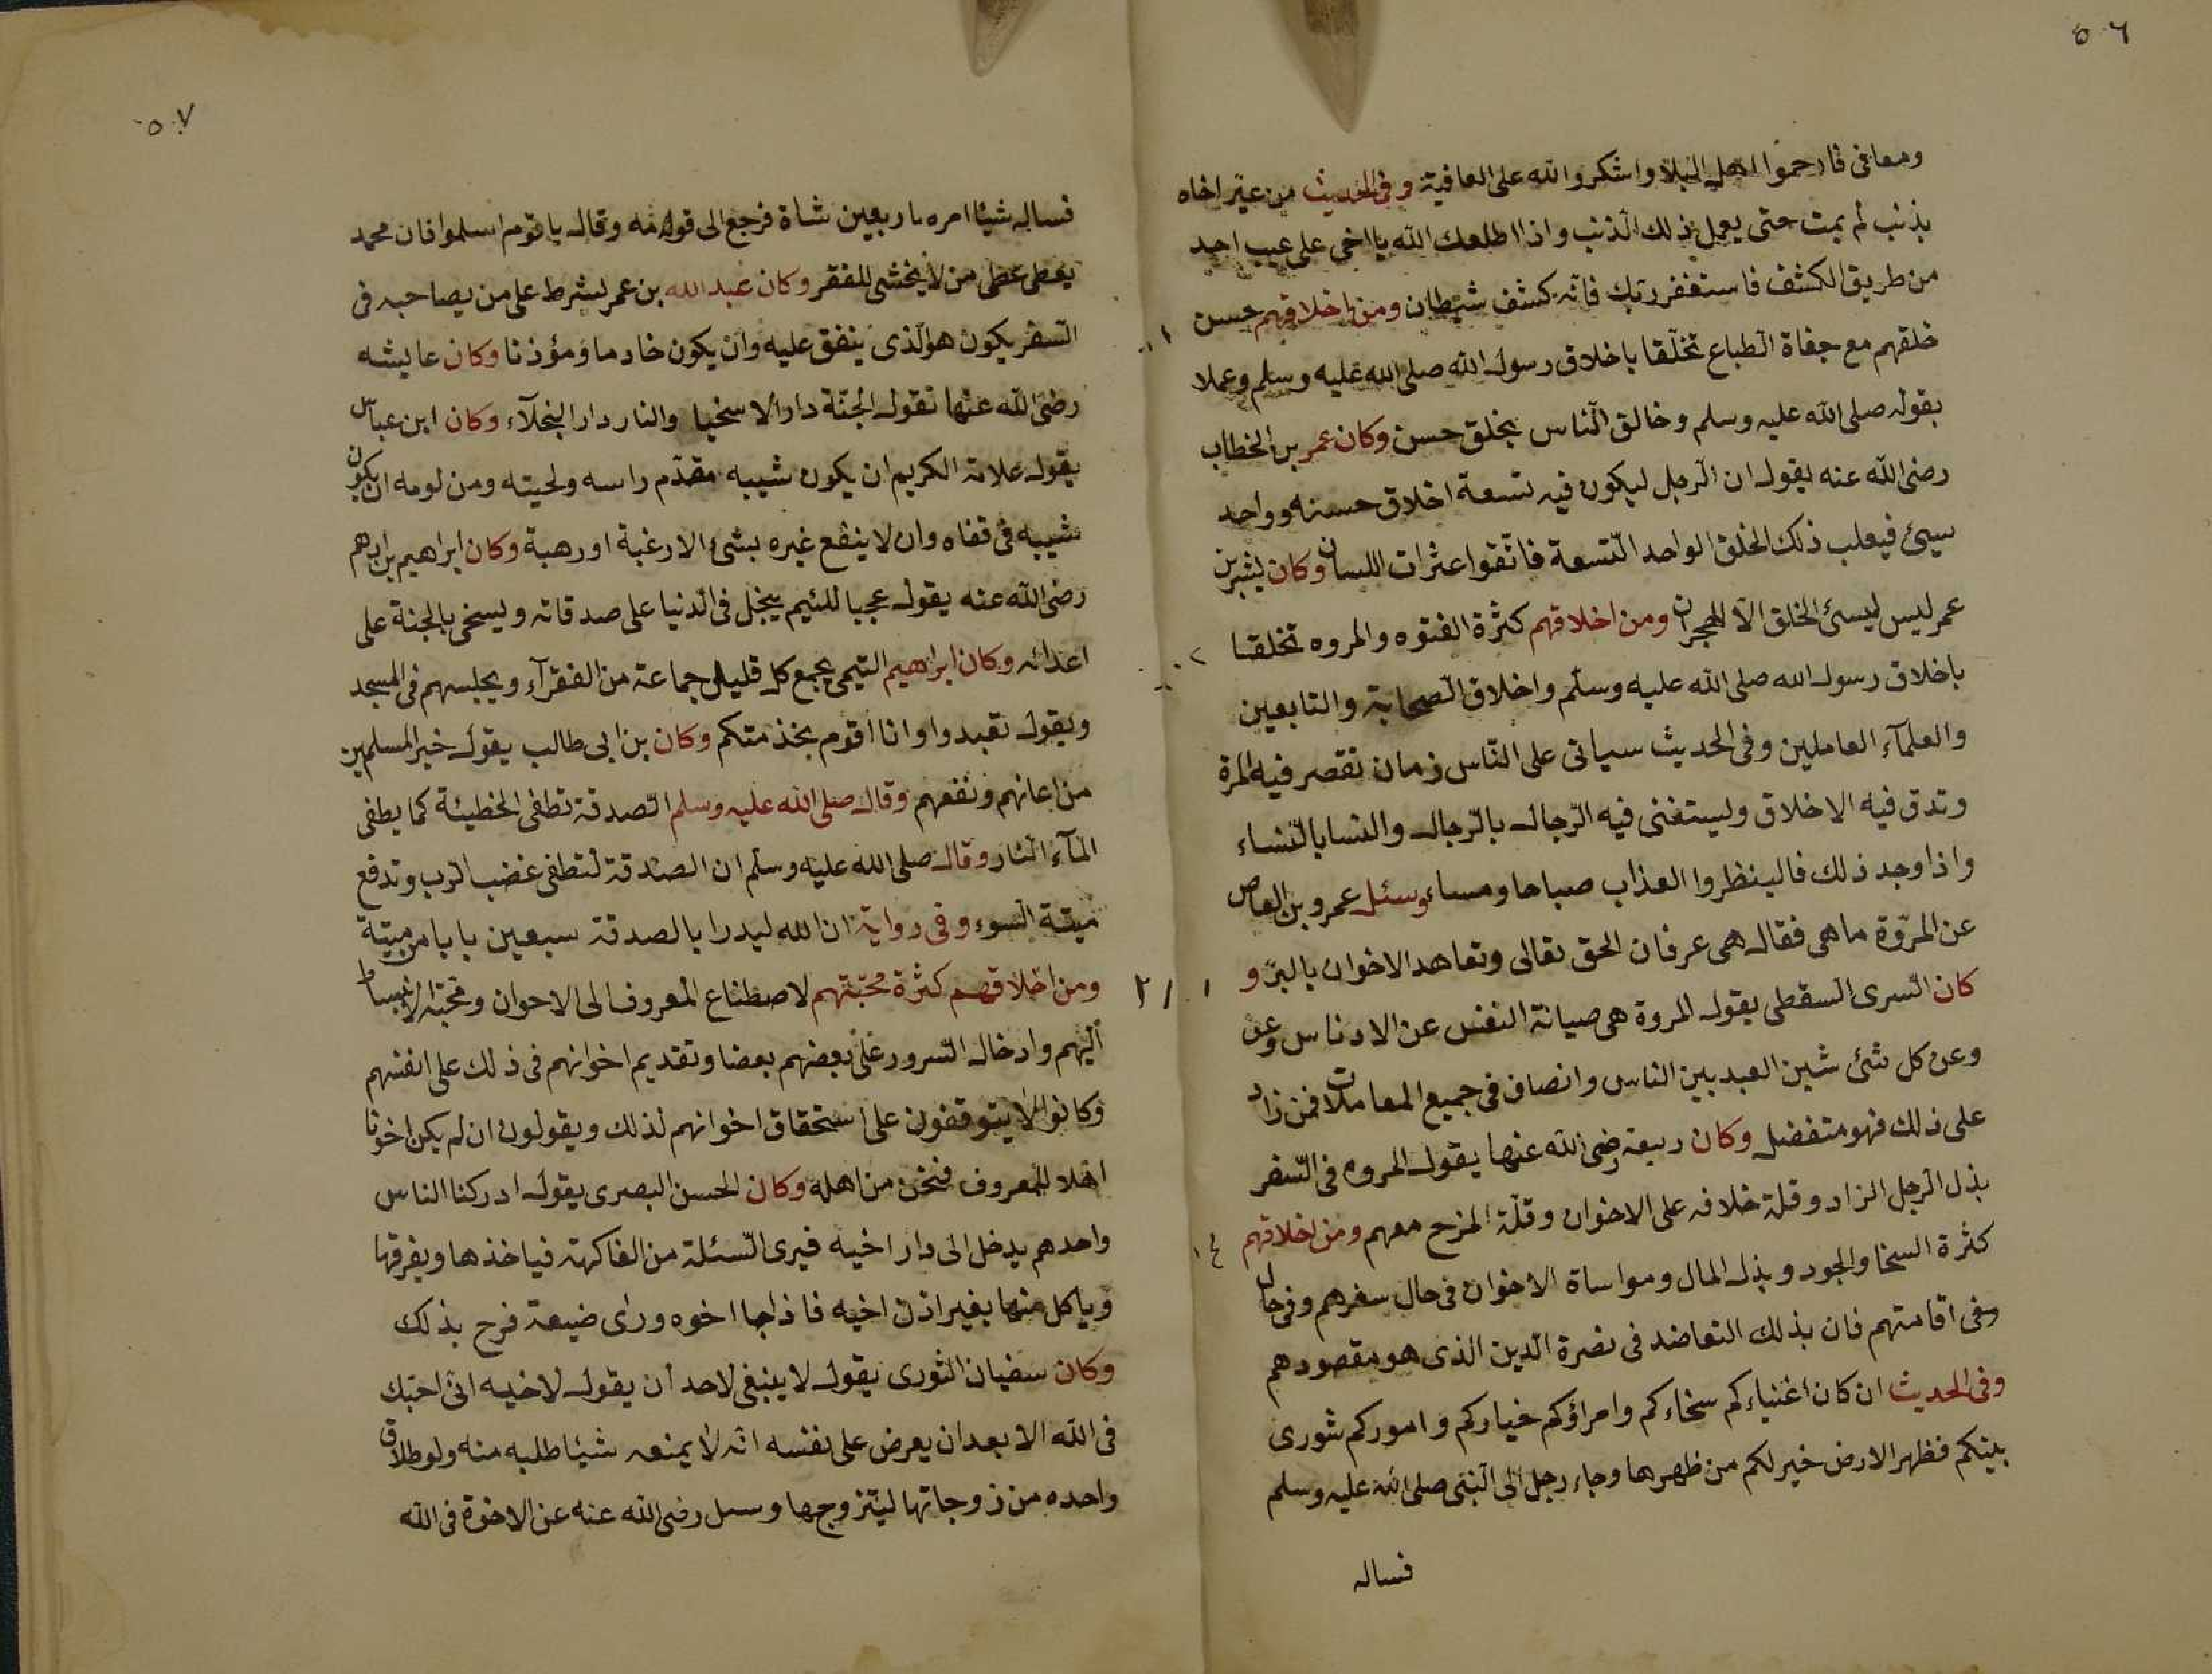 ٥٠٦
ومعافى فارحموا اهل البلا واشكروا الله على العافية وفى الحديث من عير اخاه
بذنب لم يمت حتى يعمل ذلك الذنب واذا اطلعك الله يا اخى على عيب احد
من طريق الكشف فاستغفر ربك فانه كشف شيطان ومن اخلاقهم حسن
خلقهم مع جفاة الطباع تخلقا باخلاق رسول الله صلى الله عليه وسلم وعملا
بقوله صلى الله عليه وسلم وخالق الناس بخلق حسن وكان عمر بن الخطاب
رضى الله عنه يقول ان الرجل ليكون فيه تسعة اخلاق حسنه وواحد
سيئ فيغلب ذلك الخلق الواحد التسعة فاتقوا عثرات اللسان وكان
عمر ليس ليسئ الخلق الا الهجران ومن اخلاقهم كثرة الفتوه والمروه تخلقا
باخلاق رسول الله صلى الله عليه وسلم واخلاق الصحابة والتابعين
والعلمآء العاملين وفى الحديث سياتى على الناس زمان تقصر فيه المرة
وتدق فيه الاخلاق وليستغنى فيه الرجال بالرجال والنسا بالنساء
واذا وجد ذلك فالينظروا العذاب صباحا ومساء وسئل عمرو بن العاص
عن المروة ما هى فقال هى عرفان الحق تعالى وتعاهد الاخوان بالبر و
كان السرى السقطى يقول المروة هى صيانة النفس عن الادناس وعن
وعن كل شئ شين العبد بين الناس وانصاف فى جميع المعاملات فمن زاد
على ذلك فهو متفضل وكان ربيعة رضى الله عنها يقول المروه فى السفر
بذل الرجل الزاد وقلة خلافه على الاخوان وقلة المزح معهم ومن اخلاقهم
كثرة السخا والجود وبذل المال ومواساة الاخوان فى حال سفرهم وفى حال
وفى اقامتهم فان بذلك التعاضد فى نصرة الدين الذى هو مقصودهم
وفى الحديث ان كان اغنياءكم سخاءكم وامراؤكم خياركم واموركم شورى
بينكم فظهر الارض خير لكم من ظهرها وجاء رجل الى النبى صلى الله عليه وسلم
فساله
٥٠٧
فساله شيئا امره باربعين شاة فرجع الى قومه وقال يا قوم اسلموا فان محمد
يعطى عطى من لا يخشى للفقر وكان عبد الله بن عمر يشرط على من يصاحبه فى
السفر يكون هو الذى ينفق عليه وان يكون خادما ومؤذنا وكان عايشه
رضى الله عنها تقول الجنة دار الاسخيا والنار دار البخلآء وكان ابن عباس
يقول علامة الكريم ان يكون شيبه مقدم راسه ولحيته ومن لومه ان يكون
شيبه فى قفاه وان لا ينفع غيره بشئ الا رغبة او رهبة وكان ابراهيم بن ادهم
رضى الله عنه يقول عجبا للئيم يبخل فى الدنيا على صدقاته ويسخى بالجنة على
اعدائه وكان ابراهيم التيمى يجمع كل قليل جماعة من الفقرآء ويجلسهم فى المسجد
ويقول تعبدوا وانا اقوم بخذمتكم وكان بن ابى طالب يقول خير المسلمين
من اعانهم ونفعهم وقال صلى الله عليه وسلم الصدقة تطفى الخطيئة كما يطفى
المآء النار وقال صلى الله عليه وسلم ان الصدقة لتطفى غضب الرب وتدفع
ميتة السوء وفى رواية ان الله ليدرا بالصدقة سبعين بابا من ميتة
ومن اخلاقهم كثرة محبتهم لاصطناع المعروف الى الاحوان ومحبة الانبساط
اليهم وادخال السرور على بعضهم بعضا وتقديم اخوانهم فى ذلك على انفسهم
وكانوا لا يتوقفون على استحقاق اخوانهم لذلك ويقولون ان لم يكن اخونا
اهلا للمعروف فنحن من اهله وكان الحسن البصرى يقول ادركنا الناس
واحدهم يدخل الى دار اخيه فيرى السئلة من الفاكهة فياخذها ويفرقها
وياكل منها بغير اذن اخيه فاذا جا اخوه وراى ضيعة فرح بذلك
وكان سفيان الثورى يقول لا ينبغى لاحد ان يقول لاخيه انى احبك
فى الله الا بعد ان يعرض على نفسه انه لا يمنعه شيئا طلبه منه ولو طلاق
واحده من زوجاتها ليتزوجها وسىل رضى الله عنه عن الاخوة فى الله